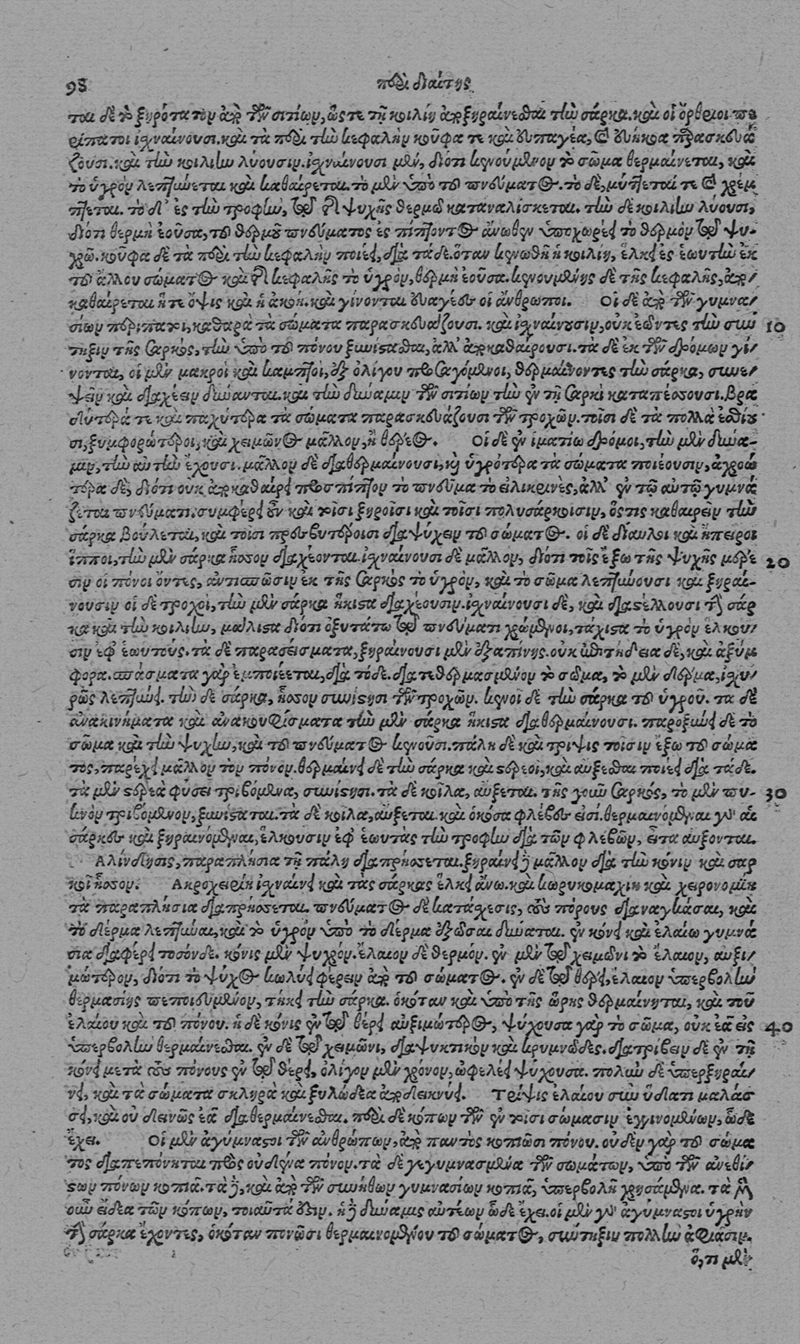 98 περὶ διαίτης
ται δὲ τὸ ξηρότατον ἀπὸ τῶν σιτίων, ὥςτε τῇ κοιλίῃ ἀποξηραίνεσθαι τὴν σάρκα. καὶ οἱ ὄρθριοι πε
ρίπατοι ἰσχναίνουσι. καὶ τὰ περὶ τὴν κεφαλὴν κοῦφά τε καὶ εὐπαγέα, καὶ εὐήκοα παρασκευά
ζουσι. καὶ τὴν κοιλίην λύουσιν. ἰσχναίνουσι μὲν, διότι κινούμενον τὸ σῶμα θερμαίνεται, καὶ
τὸ ὑγρὸν λεπτύνεται καὶ καθαίρεται. τὸ μὲν ὑπὸ τοῦ πνεύματος. τὸ δὲ, μύσσεταί τε καὶ χρέμ
πτεται. τὸ δ' ἐς τὴν τροφὴν, τῷ τῆς ψυχῆς θερμῷ καταναλίσκεται. τὴν δὲ κοιλίην λύουσι,
διότι θερμὴ ἐοῦσα, τοῦ ψυχροῦ πνεύματος ἐς πίπτοντος ἄνωθεν ὑποχωρεῖ τὸ θερμὸν τῷ ψυ-
χρῷ. κοῦφα δὲ τὰ περὶ τὴν κεφαλὴν ποιεῖ, διὰ τάδε. ὅταν κενωθῇ ἡ κοιλίη, ἕλκει ἐς ἑωυτὴν ἐκ
τοῦ ἄλλου σώματος καὶ τῆς κεφαλῆς τὸ ὑγρὸν, θερμὴ ἐοῦσα. κενουμένης δὲ τῆς κεφαλῆς, ἀπο
καθαίρεται ἥ τε ὄψις καὶ ἡ ἀκοή. καὶ γίνονται εὐαγέες οἱ ἄνθρωποι. Οἱ δὲ ἀπὸ τῶν γυμνα
σίων περίπατοι, καθαρὰ τὰ σώματα παρασκευάζουσι. καὶ ἰσχναίνουσιν, οὐκ ἐῶντες τὴν σύν 10
τηξιν τῆς σαρκὸς, τὴν ὑπὸ τοῦ πόνου ξυνίστασθαι, ἀλλ' ἀποκαθαίρουσι. τὰ δὲ ἐκ τῶν δρόμων γί
νονται, οἱ μὲν μακροὶ καὶ καμπτοὶ, ἐξ ὀλίγου προσαγόμενοι, θερμαίνοντες τὴν σάρκα, συνέ
ψειν καὶ διαχέειν δύνανται. καὶ τὴν δύναμιν τῶν σιτίων τὴν ἐν τῇ σαρκὶ καταπέσσουσι. βρα
δύτερά τε καὶ παχύτερα τὰ σώματα παρασκευάζουσι τῶν τροχῶν. τοῖσι δὲ τὰ πολλὰ ἐσθίου
σι, ξυμφορώτεροι, καὶ χειμῶνος μᾶλλον, ἢ θέρεος. Οἱ δὲ ἐν ἱματίῳ δρόμοι, τὴν μὲν δύνα-
μιν, τὴν αὐτὴν ἔχουσι. μᾶλλον δὲ διαθερμαίνουσι, καὶ ὑγρότερα τὰ σώματα ποιέουσιν, ἀχροώ
τερα δὲ, διότι οὐκ ἀποκαθαίρει προσπίπτον τὸ πνεῦμα τὸ εἰλικρινὲς, ἀλλ' ἐν τῷ αὐτῷ γυμνά
ζεται πνεύματι. συμφέρει οὖν καὶ τοῖσι ξηροῖσι καὶ τοῖσι πολυσάρκοισιν, ὅςτις καθαιρεῖν τὴν
σάρκα βούλεται, καὶ τοῖσι πρεσβυτέροισι διὰ ψύχειν τοῦ σώματος. οἱ δὲ δίαυλοι καὶ ἠπειροι
ἵπποι, τὴν μὲν σάρκα ἧσσον διαχέονται. ἰσχναίνουσι δὲ μᾶλλον, διότι τοῖς ἔξω τῆς ψυχῆς μέρε 20
σιν οἱ πόνοι ὄντες, ἀντισπῶσιν ἐκ τῆς σαρκὸς τὸ ὑγρὸν, καὶ τὸ σῶμα λεπτύνουσι καὶ ξηραί-
νουσιν οἱ δὲ τροχοὶ, τὴν μὲν σάρκα ἥκιστα διαχέουσιν. ἰσχναίνουσι δὲ, καὶ διαστέλλουσι τὴν σάρ
κα καὶ τὴν κοιλίην, μάλιστα διότι ὀξυτάτῳ τῷ πνεύματι χρώμενοι, τάχιστα τὸ ὑγρὸν ἕλκου
σιν ἐφ' ἑωυτούς. τὰ δὲ παρασείσματα, ξηραίνουσι μὲν ἐξαπίνης. οὐκ ἐπιτήδεια δὲ, καὶ ἀξύμ
φορα. σπάσματα γὰρ ἐμποιέεται, διὰ τόδε. διὰ τεθερμασμένον τὸ σῶμα, τὸ μὲν δέρμα, ἰσχυ
ρῶς λεπτύνει. τὴν δὲ σάρκα, ἧσσον συνίστησι τῶν τροχῶν. κενοῖ δὲ τὴν σάρκα τοῦ ὑγροῦ. τὰ δὲ
ἀνακινήματα καὶ ἀνακουφίσματα τὴν μὲν σάρκα ἥκιστα διαθερμαίνουσι. παροξύνει δὲ τὸ
σῶμα καὶ τὴν ψυχὴν, καὶ τοῦ πνεύματος κενοῦσι. πάλη δὲ καὶ τρίψις τοῖσιν ἔξω τοῦ σώμα
τος, παρέχει μᾶλλον τὸν πόνον. θερμαίνει δὲ τὴν σάρκα καὶ στερεοῖ, καὶ αὔξεσθαι ποιεῖ διὰ τάδε.
τὰ μὲν στερεὰ φύσει τριβόμενα, συνίστησι. τὰ δὲ κοῖλα, αὔξεται. τῆς γοῦν σαρκὸς, τὸ μὲν πυ- 30
κνὸν τριβόμενον, ξυνίσταται. τὰ δὲ κοῖλα, αὔξεται. καὶ ὁκόσα φλέβες εἰσί. θερμαινόμεναι γὰρ αἱ
σάρκες καὶ ξηραινόμεναι, ἕλκουσιν ἐφ' ἑωυτὰς τὴν τροφὴν διὰ τῶν φλεβῶν, εἶτα αὔξονται.
Ἀλίνδησις, παραπλήσια τῇ πάλῃ διαπρήσσεται. ξηραίνει δὲ μᾶλλον διὰ τὴν κόνιν καὶ σαρ
κοῖ ἧσσον. Ἀκροχειρίη ἰσχναίνει καὶ τὰς σάρκας ἕλκει ἄνω. καὶ κωρυκομαχίη καὶ χειρονομίη
τὰ παραπλήσια διαπρήσσεται. πνεύματος δὲ κατάχεσις, τοὺς πόρους διαναγκάσαι, καὶ
τὸ δέρμα λεπτῦναι, καὶ τὸ ὑγρὸν ὑπὸ τὸ δέρμα ἐξῶσαι δύναται. ἐν κόνει καὶ ἐλαίῳ γυμνά
σια διαφέρει τοσόνδε. κόνις μὲν ψυχρόν. ἔλαιον δὲ θερμόν. ἐν μὲν τῷ χειμῶνι τὸ ἔλαιον, αὐξι
μώτερον, διότι τὸ ψύχος κωλύει φέρειν ἀπὸ τοῦ σώματος. ἐν δὲ τῷ θέρει, ἔλαιον ὑπερβολὴν
θερμασίης πεποιευμένον, τήκει τὴν σάρκα. ὁκόταν καὶ ὑπὸ τῆς ὥρης θερμαίνηται, καὶ τοῦ
ἐλαίου καὶ τοῦ πόνου. ἡ δὲ κόνις ἐν τῷ θέρει αὐξιμώτερος, ψύχουσα γὰρ τὸ σῶμα, οὐκ ἐᾷ εἰς 40
ὑπερβολὴν θερμαίνεσθαι. ἐν δὲ τῷ χειμῶνι, διαψυκτικὸν καὶ κρυμνῶδες. διατρίβειν δὲ ἐν τῇ
κόνει μετὰ τοὺς πόνους ἐν τῷ θέρει, ὀλίγον μὲν χρόνον, ὠφελεῖ ψύχουσα. πολὺν δὲ ὑπερξηραί
νει, καὶ τὰ σώματα σκληρὰ καὶ ξυλώδεα ἀποδεικνύει. Τρίψις ἐλαίου σὺν ὕδατι μαλάσ
σει, καὶ οὐ δεινῶς ἐᾷ διαθερμαίνεσθαι. περὶ δὲ κόπων τῶν ἐν τοῖσι σώμασιν ἐγγινομένων, ὧδε
ἔχει. Οἱ μὲν ἀγύμναστοι τῶν ἀνθρώπων, ἀπὸ παντὸς κοπιῶσι πόνου. οὐδὲν γὰρ τοῦ σώμα
τος διαπεπόνηται πρὸς οὐδένα πόνον. τὰ δὲ γεγυμνασμένα τῶν σωμάτων, ὑπὸ τῶν ἀνεθί
στων πόνων κοπιᾷ. τὰ δὲ, καὶ ἀπὸ τῶν συνήθων γυμνασίων κοπιᾷ, ὑπερβολῇ χρησάμενα. τὰ μὲν
οὖν εἴδεα τῶν κόπων, τοιαῦτά ἐστιν. ἡ δὲ δύναμις αὐτέων ὧδε ἔχει. οἱ μὲν γὰρ ἀγύμναστοι ὑγρὴν
τὴν σάρκα ἔχοντες, ὁκόταν πονῶσι θερμαινομένου τοῦ σώματος, σύντηξιν πολλὴν ἀφιᾶσιν.
ὅ, τι μὲν